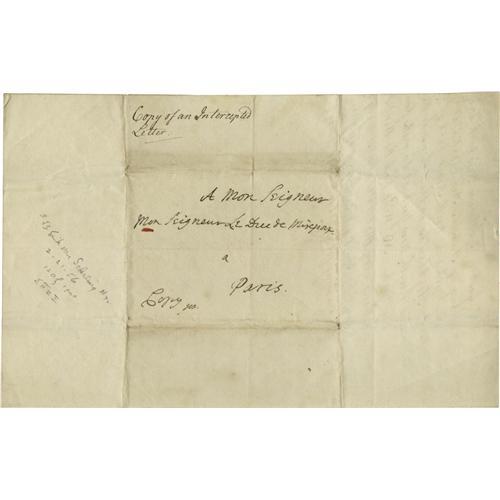 Copy of an Intercepted
Letter.
A Mon Seigneur
Mon Seigneur Le Duc de Mirepoix
a
Paris.
Copy
2.21.56